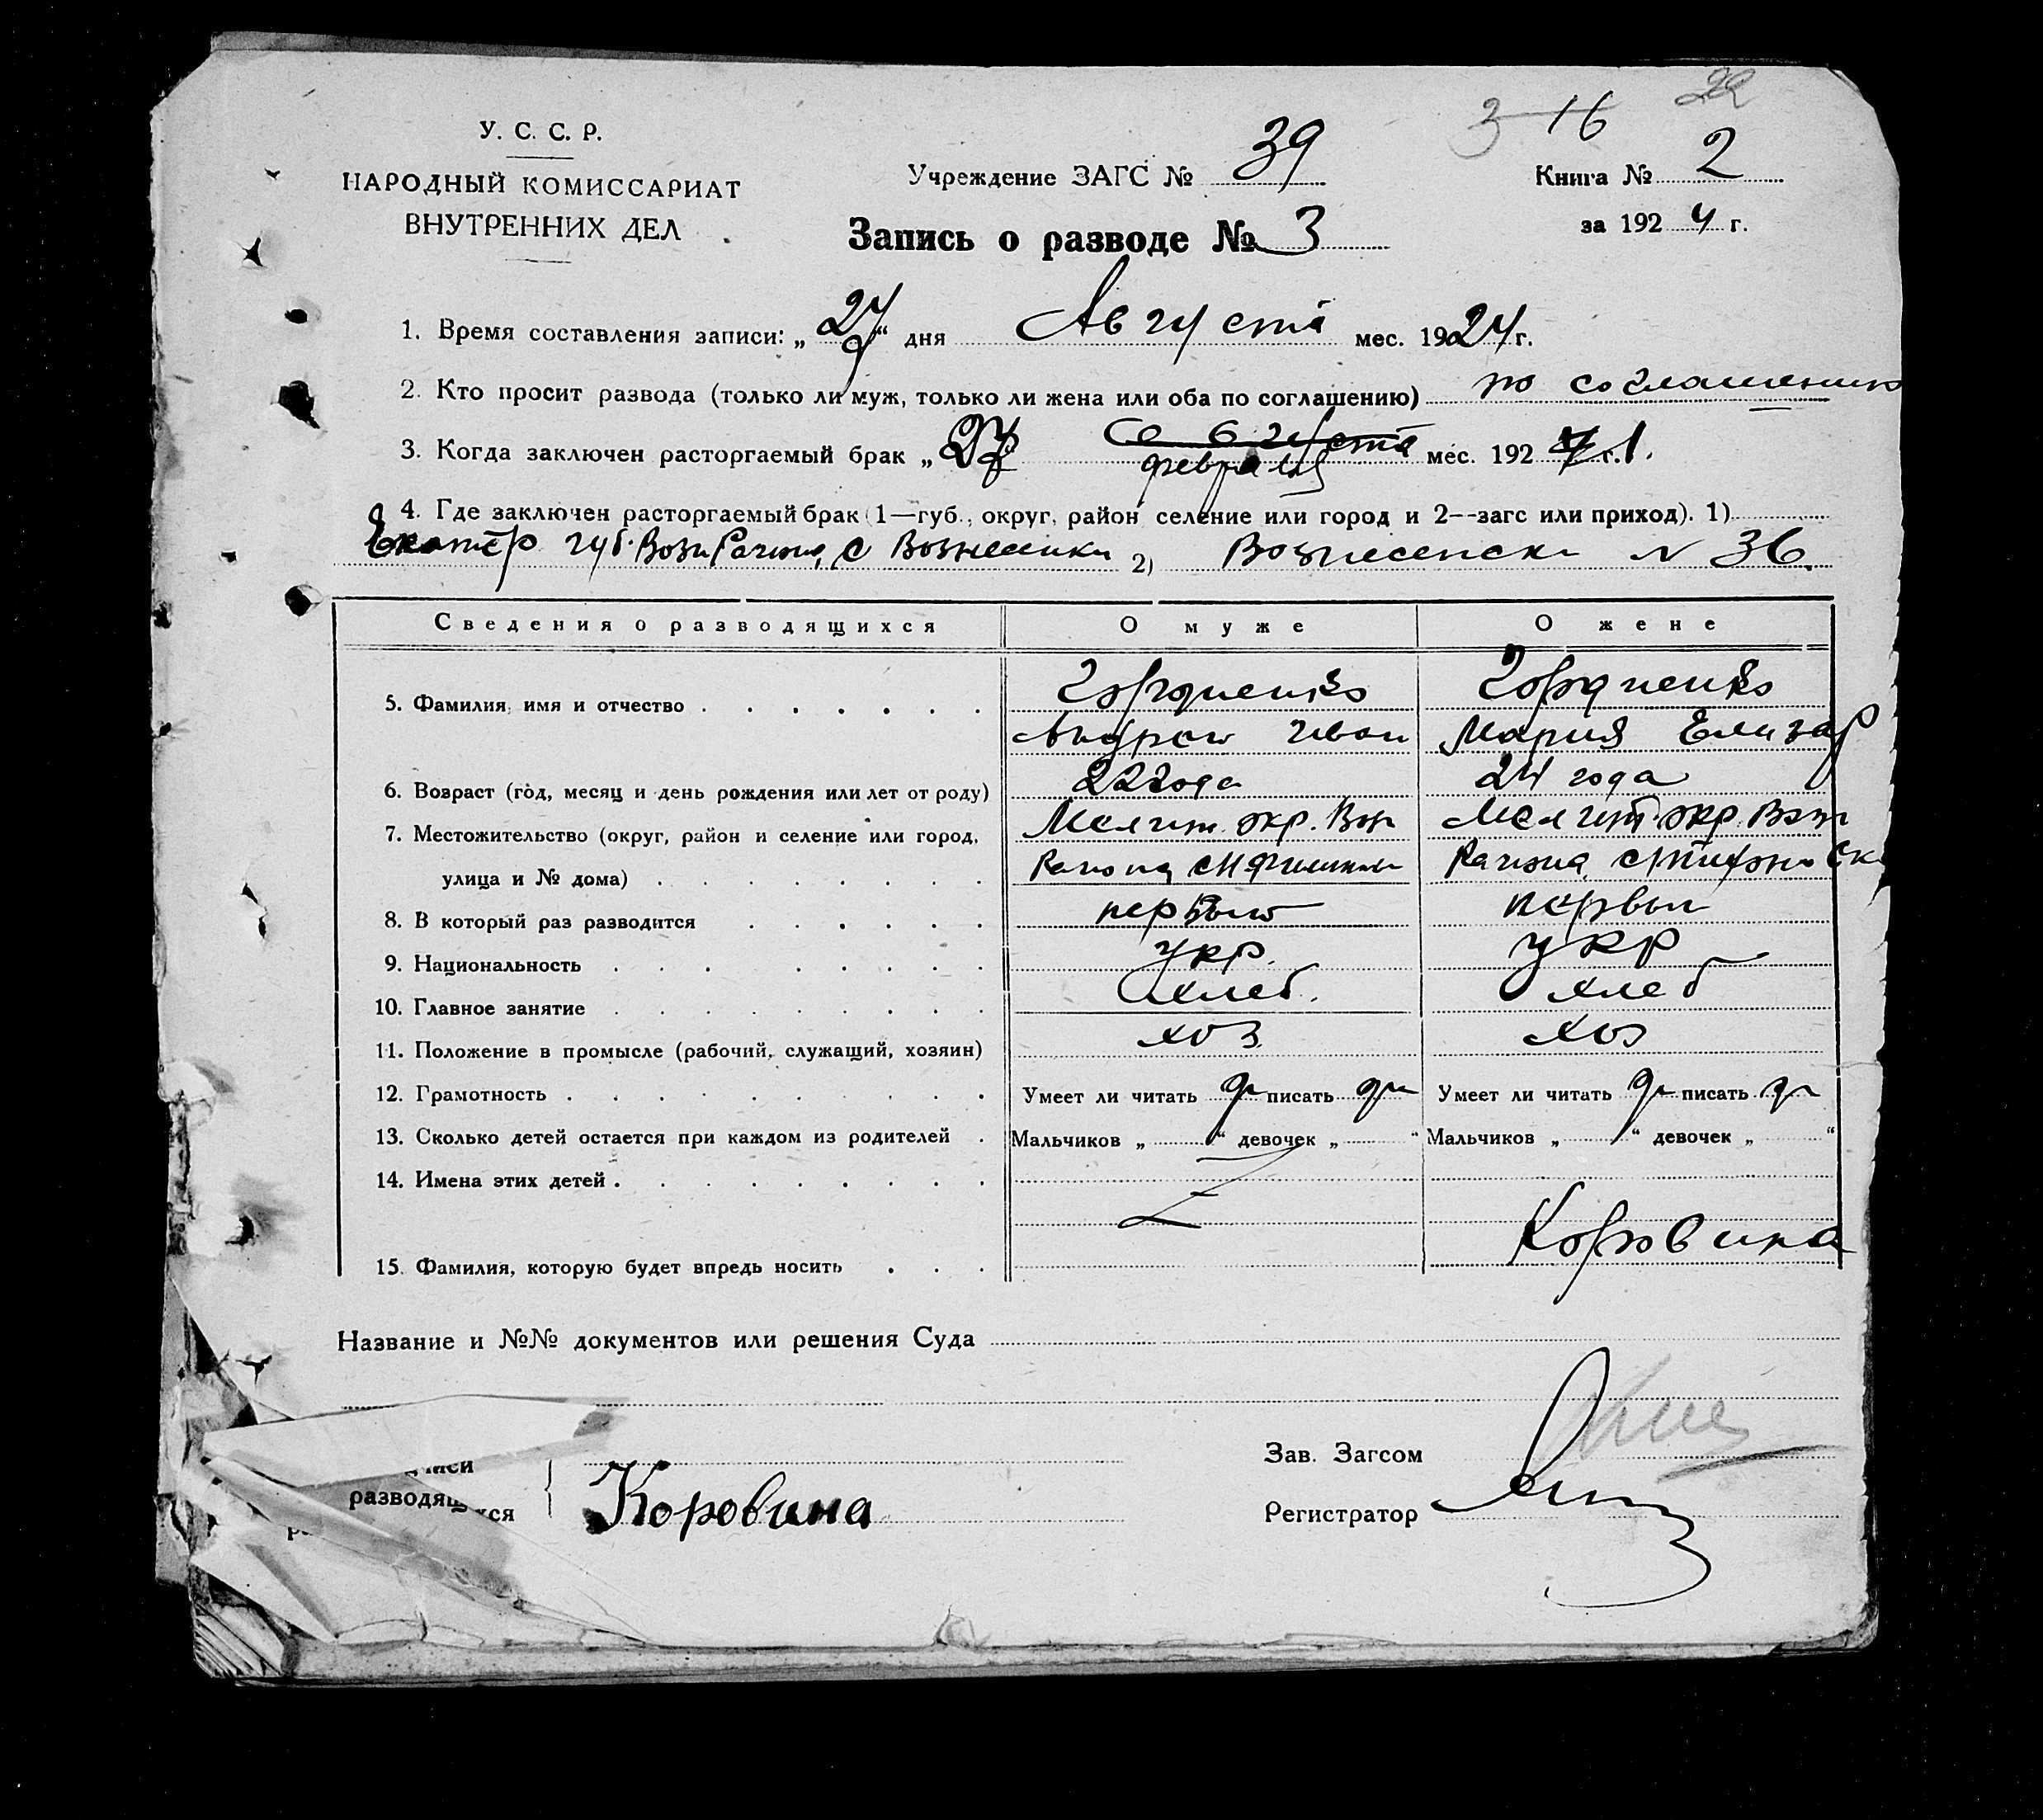 3 16 22
У. С. С. Р.
НАРОДНЫЙ КОМИССАРИАТ
ВНУТРЕННИХ ДЕЛ
Учреждение ЗАГС № 39
Книга № 2
за 1924 г.
Запись о разводе № 3
1. Время составления записи: „27“ дня Августа мес. 1924 г.
2. Кто просит развода (только ли муж, только ли жена или оба по соглашению) по соглашению
3. Когда заключен расторгаемый брак „27 Августа февраля мес. 192 г. 1.
4. Где заключен расторгаемый брак (1—губ., округ, район селение или город и 2--загс или приход). 1)
Екатер губ. Возн Района, с Вознесенки 2) Вознесенск N 36.
Сведения о разводящихся О муже О жене
5. Фамилия, имя и отчество Гордиенко Гордиенко
Андрей Иван Мария Елизар
6. Возраст (год, месяц и день рождения или лет от роду) 22 года 24 года
7. Местожительство (округ, район и селение или город, Мелит. окр. Воз Мелит. окр. Возн
улица и № дома) Района Района
8. В который раз разводится первый первый
9. Национальность укр. укр
10. Главное занятие хлеб. хлеб
11. Положение в промысле (рабочий, служащий, хозяин) хоз. хоз
12. Грамотность Умеет ли читать да писать да Умеет ли читать да писать да
13. Сколько детей остается при каждом из родителей Мальчиков „ “ девочек „ “ Мальчиков „ “ девочек „ “
14. Имена этих детей
15. Фамилия, которую будет впредь носить Коровина
Название и №№ документов или решения Суда
разводящихся
Коровина
Зав. Загсом
Регистратор